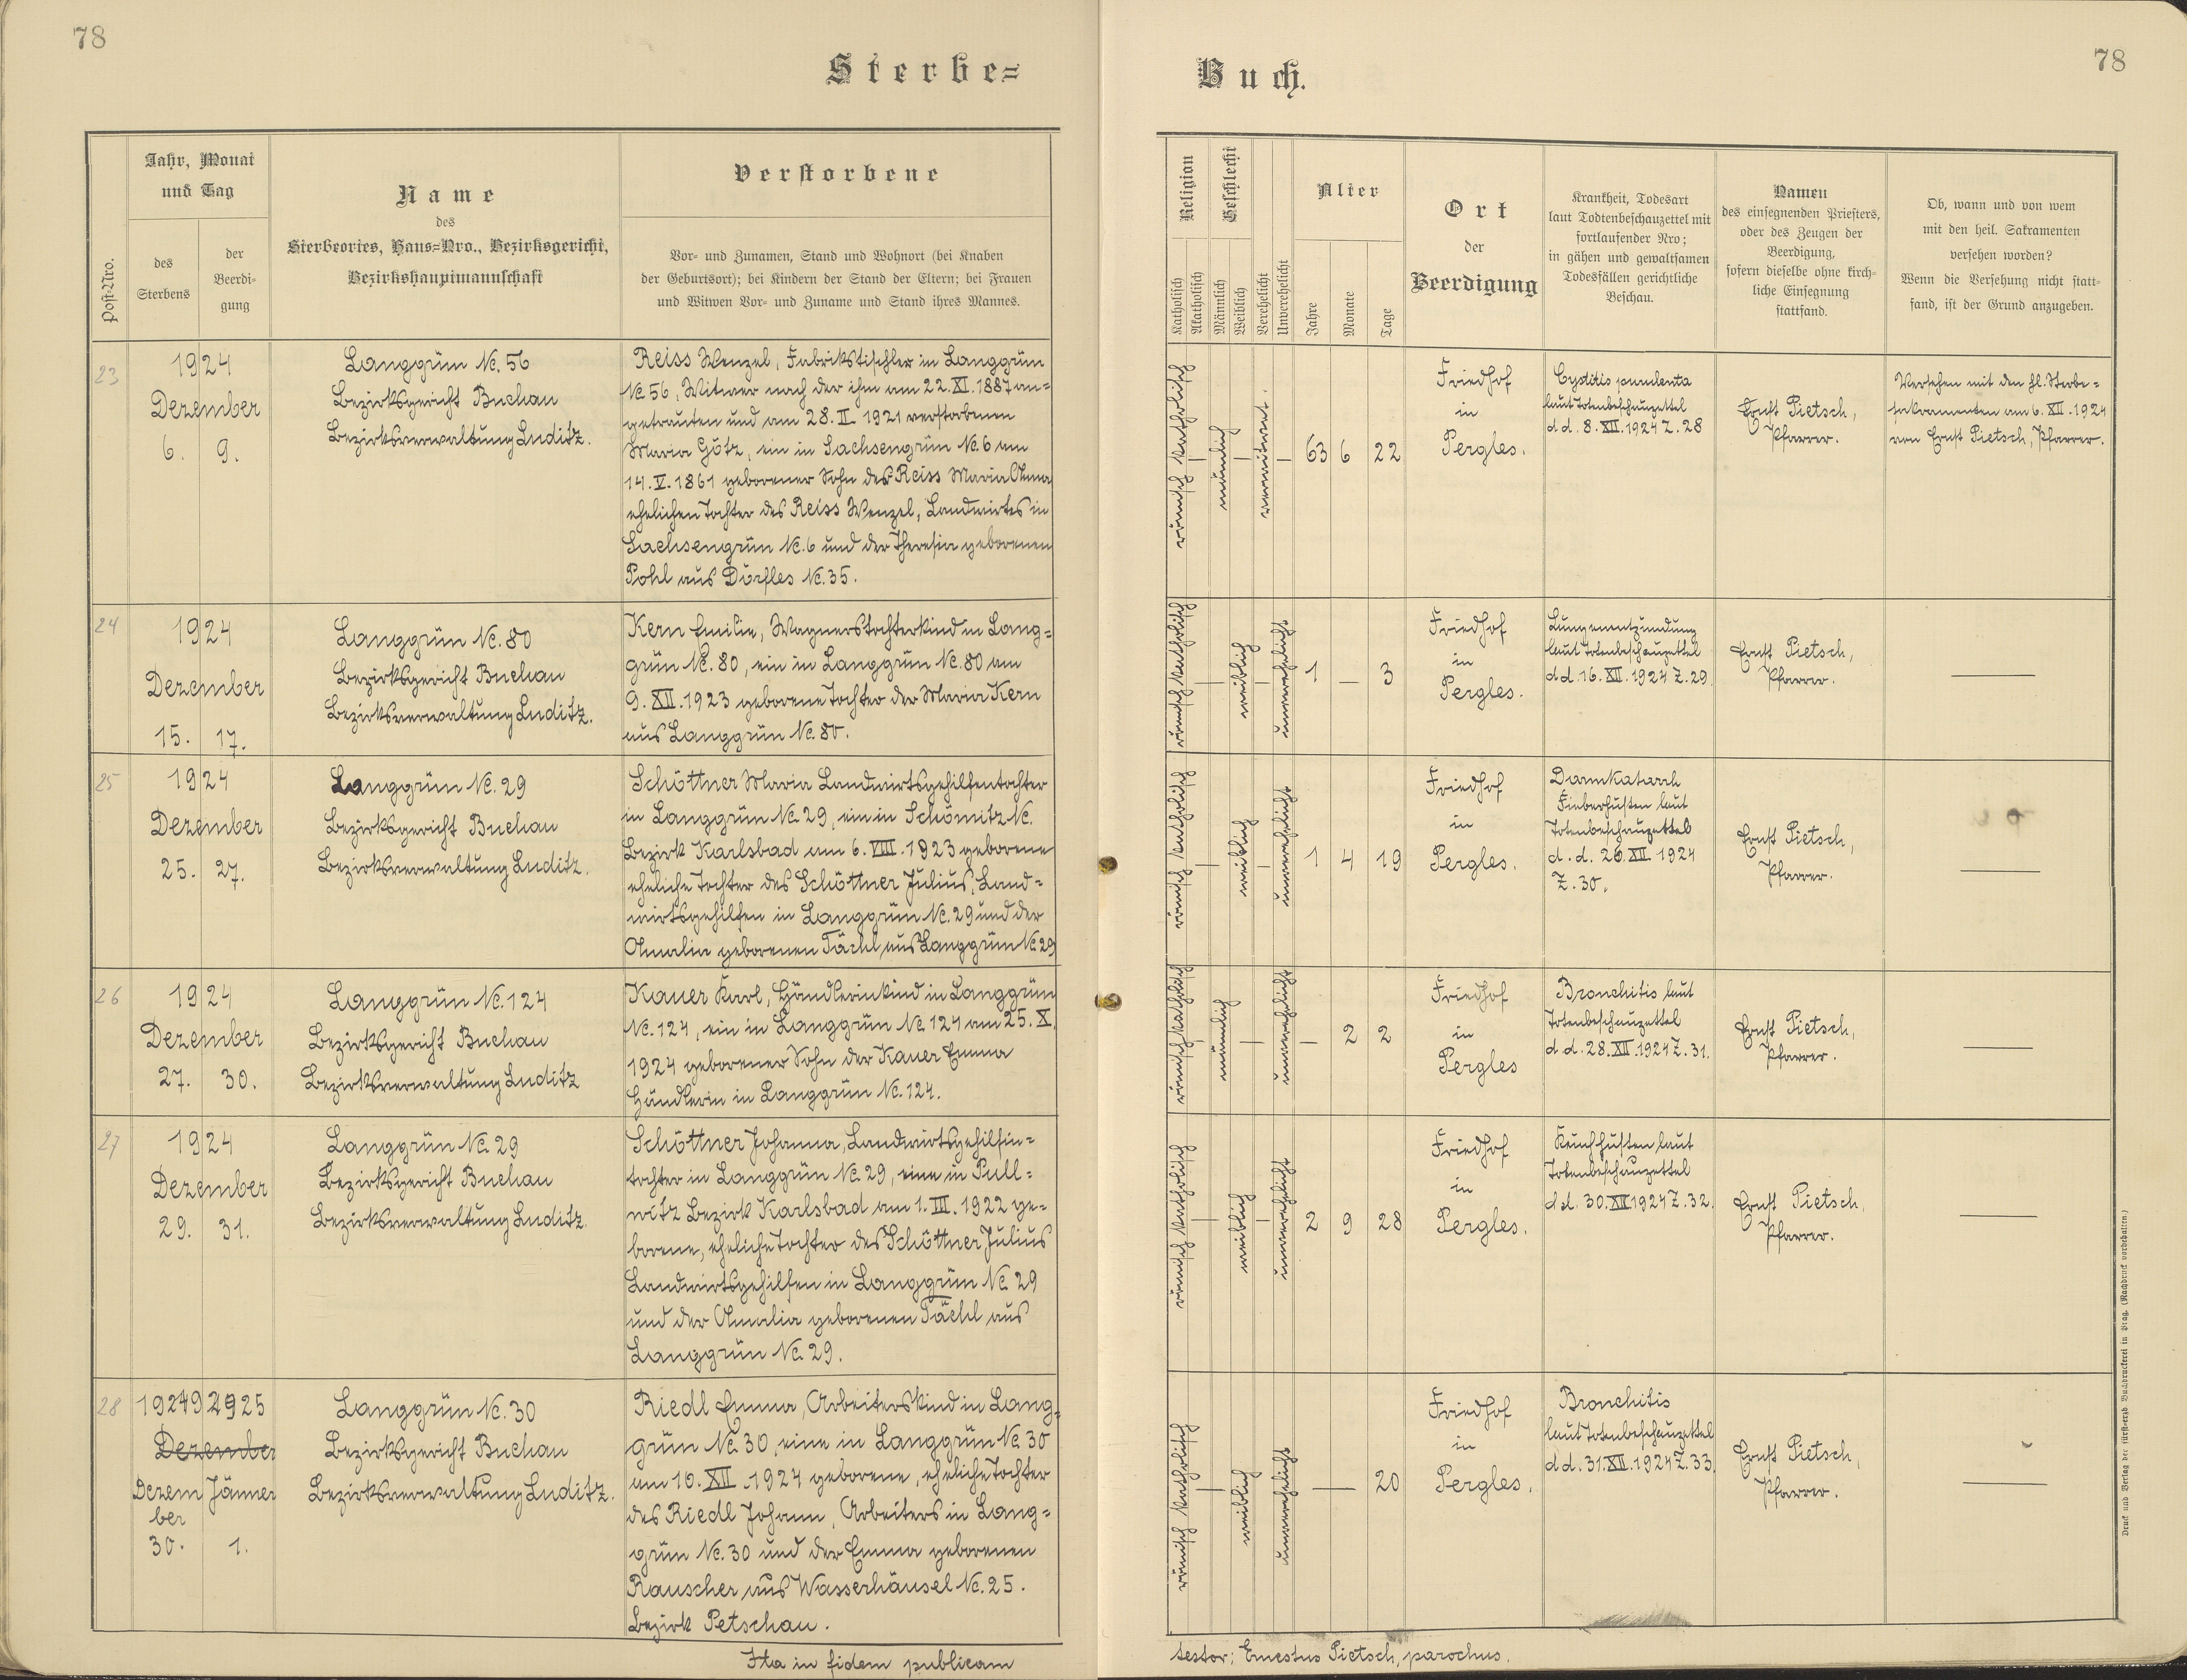 78
Sterbe=
Jahr, Monat
und Tag
Name
des
Sterbeortes, Haus=Nro., Bezirksgericht,
Bezirkshauptmannschaft
Verstorbene
Post-Nro.
des
Sterbens
der
Beerdi-
gung
Vor- und Zunamen, Stand und Wohnort (bei Knaben
der Geburtsort); bei Kindern der Stand der Eltern; bei Frauen
und Witwen Vor- und Zuname und Stand ihres Mannes.
23
1924
Dezember
6. 9.
Langgrün No. 56
Bezirksgericht Buchau
Bezirksverwaltung Luditz.
Reiss Wenzel, Fabrikstischler in Langgrün
No 56, Witwer nach der ihm am 22. XI. 1887 an=
getrauten und am 28. II. 1921 verstorbenen
Maria Götz, ein in Sachsengrün No. 6 am
14. V. 1861 geborener Sohn der Reiss Maria Anna
ehelichen Tochter des Reiss Wenzel, Landwirtes in
Sachsengrün No. 6 und der Theresia geborenen
Pohl aus Dörfles No. 35.
24
1924
Dezember
15. 17.
Langgrün No. 80
Bezirksgericht Buchau
Bezirksverwaltung Luditz.
Kern Emilie, Wagnerstochterkind in Lang=
grün No. 80, ein in Langgrün No. 80 am
9. XII. 1923 geborene Tochter der Maria Kern
aus Langgrün No. 80.
25
1924
Dezember
25. 27.
Langgrün No. 29
Bezirksgericht Buchau
Bezirksverwaltung Luditz.
Schöttner Maria Landwirtsgehilfentochter
in Langgrün No. 29, ein in Schömitz No.
Bezirk Karlsbad am 6. VIII. 1923 geborene
eheliche Tochter des Schöttner Julius, Land=
wirtsgehilfen in Langgrün No. 29 und der
Amalia geborenen Tächl aus Langgrün No 29
26
1924
Dezember
27. 30.
Langgrün No. 124
Bezirksgericht Buchau
Bezirksverwaltung Luditz
Kauer Karl, Händlerinkind in Langgrün
No. 124, ein in Langgrün No 124 am 25. X.
1924 geborener Sohn der Kauer Emma
Händlerin in Langgrün No. 124.
27
1924
Dezember
29. 31.
Langgrün No. 29
Bezirksgericht Buchau
Bezirksverwaltung Luditz.
Schöttner Johanna, Landwirtsgehilfin=
tochter in Langgrün No. 29, eine in Pull=
witz Bezirk Karlsbad am 1. III. 1922 ge=
borene, eheliche Tochter des Schöttner Julius
Landwirtsgehilfen in Langgrün No. 29
und der Amalia geborenen Tächl aus
Langgrün No. 29.
28
1924 1925
Dezember
Dezem Jänner
ber
30. 1.
Langgrün No. 30
Bezirksgericht Buchau
Bezirksverwaltung Luditz.
Riedl Emma, Arbeiterskind in Lang=
grün No. 30, eine in Langgrün No. 30
am 10. XII. 1924 geborene, eheliche Tochter
des Riedl Johann, Arbeiters in Lang=
grün No. 30 und der Emma geborenen
Rauscher aus Wasserhäusel No. 25.
Bezirk Petschau.
Ita in fidem publicam
78
Buch.
Religion
Geschlecht
Katholisch
Akatholisch
Männlich
Weiblich
Verehelicht
Unverehelicht
Alter
Jahre
Monate
Tage
Ort
der
Beerdigung
Krankheit, Todesart
laut Todtenbeschauzettel mit
fortlaufender Nro;
in gähen und gewaltsamen
Todesfällen gerichtliche
Beschau.
Namen
des einsegnenden Priesters,
oder des Zeugen der
Beerdigung,
sofern dieselbe ohne kirch-
liche Einsegnung
stattfand.
Ob, wann und von wem
mit den heil. Sakramenten
versehen worden?
Wenn die Versehung nicht statt-
fand, ist der Grund anzugeben.
römisch katholisch
—
männlich
—
verwitwet.
—
63 6 22
Friedhof
in
Pergles.
Cystitis purulenta
laut Totenbeschauzettel
d d. 8. XII. 1924 Z. 28
Ernst Pietsch,
Pfarrer.
Versehen mit den hl. Sterbe=
sakramenten am 6. XII. 1924
von Ernst Pietsch, Pfarrer.
römisch katholisch
—
weiblich
—
unverehelicht
1 — 3
Friedhof
in
Pergles.
Lungenentzündung
laut Totenbeschauzettel
d d. 16. XII. 1924 Z. 29.
Ernst Pietsch,
Pfarrer.
—
römisch katholisch
—
weiblich
—
unverehelicht
1 4 19
Friedhof
in
Pergles.
Darmkatarrh
Fieberhusten laut
Totenbeschauzettel
d. d. 26. XII. 1924
Z. 30.
Ernst Pietsch,
Pfarrer.
—
römisch katholisch
männlich
—
unverehelicht
— 2 2
Friedhof
in
Pergles
Bronchitis laut
Totenbeschauzettel
d d. 28. XII. 1924 Z. 31.
Ernst Pietsch,
Pfarrer.
—
römisch katholisch
—
weiblich
—
unverehelicht
2 9 28
Friedhof
in
Pergles.
Keuchhusten laut
Totenbeschauzettel
d d. 30. XII. 1924 Z. 32.
Ernst Pietsch,
Pfarrer.
—
römisch katholisch
—
weiblich
unverehelicht
— 20
Friedhof
in
Pergles.
Bronchitis
laut Totenbeschauzettel
d d. 31. XII. 1924 Z. 33.
Ernst Pietsch,
Pfarrer.
—
testor: Ernestus Pietsch, parochus.
Druck und Verlag der fürsterzb. Buchdruckerei in Prag. (Nachdruck vorbehalten.)